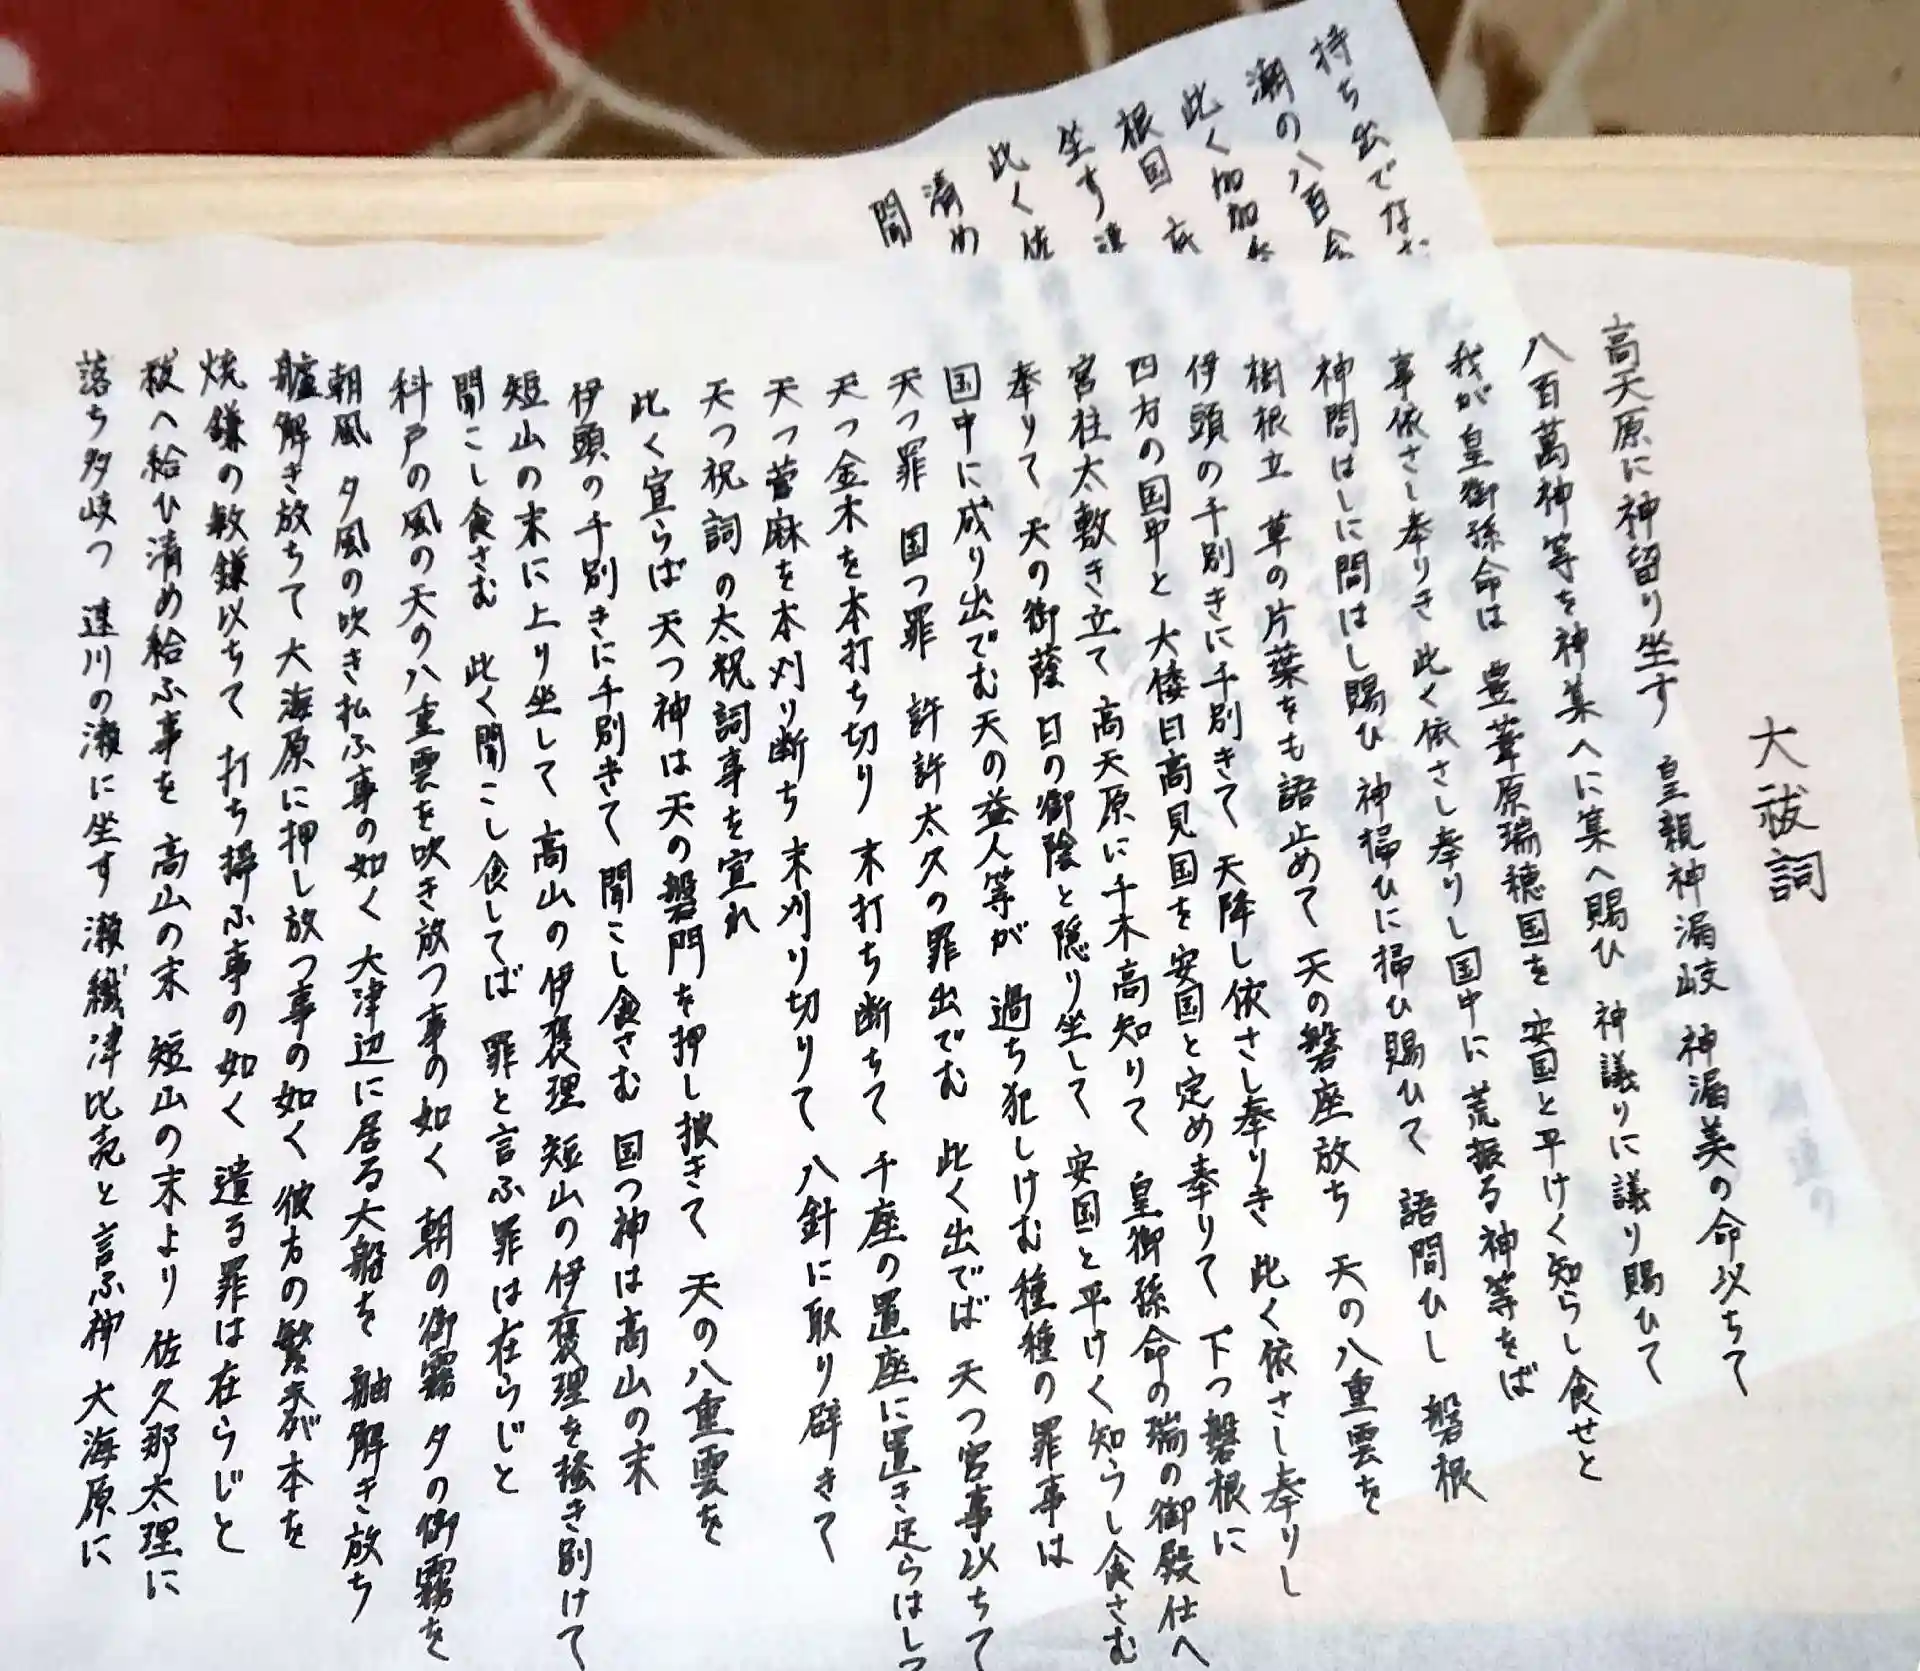 大祓詞
高天原に神留り坐す 皇親神漏岐 神漏美の命以ちて
八百萬神等を神集へに集へ賜ひ 神議りに議り賜ひて
我が皇御孫命は 豊葦原瑞穂国を 安国と平けく知らし食せと
事依さし奉りき 此く依さし奉りし国中に 荒振る神等をば
神問はしに問はし賜ひ 神掃ひに掃ひ賜ひて 語問ひし 磐根
樹根立 草の片葉をも語止めて 天の磐座放ち 天の八重雲を
伊頭の千別きに千別きて 天降し依さし奉りき 此く依さし奉りし
四方の国中と 大倭日高見国を安国と定め奉りて 下つ磐根に
宮柱太敷き立て 高天原に千木高知りて 皇御孫命の瑞の御殿仕へ
奉りて 天の御蔭 日の御陰と隠り坐して 安国と平けく知らし食さむ
国中に成り出でむ天の益人等が 過ち犯しけむ種種の罪事は
天つ罪 国つ罪 許許太久の罪出でむ 此く出でば 天つ宮事以ちて
天つ金木を本打ち切り 末打ち断ちて 千座の置座に置き足らはして
天つ菅麻を本刈り断ち 末刈り切りて 八針に取り辟きて
天つ祝詞の太祝詞事を宣れ
此く宣らば 天つ神は天の磐門を押し披きて 天の八重雲を
伊頭の千別きに千別きて 聞こし食さむ 国つ神は高山の末
短山の末に上り坐して 高山の伊褒理 短山の伊褒理を掻き別けて
聞こし食さむ 此く聞こし食してば 罪と言ふ罪は在らじと
科戸の風の天の八重雲を吹き放つ事の如く 朝の御霧 夕の御霧を
朝風 夕風の吹き払ふ事の如く 大津辺に居る大船を 舳解き放ち
艫解き放ちて 大海原に押し放つ事の如く 彼方の繁木が本を
焼鎌の敏鎌以ちて 打ち掃ふ事の如く 遺る罪は在らじと
祓へ給ひ清め給ふ事を 高山の末 短山の末より 佐久那太理に
落ち多岐つ 速川の瀬に坐す瀬織津比売と言ふ神 大海原に
持ち出でな
潮の八百会
此く加加
根国 底
坐す速
此く佐
清め
聞